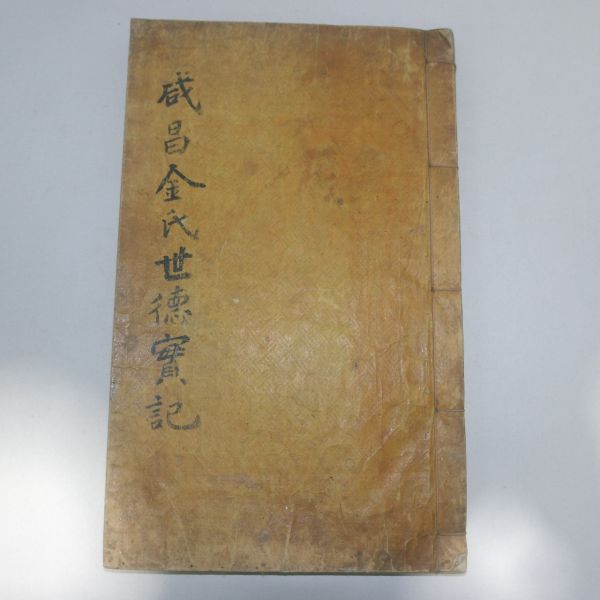 咸昌金氏世德實記